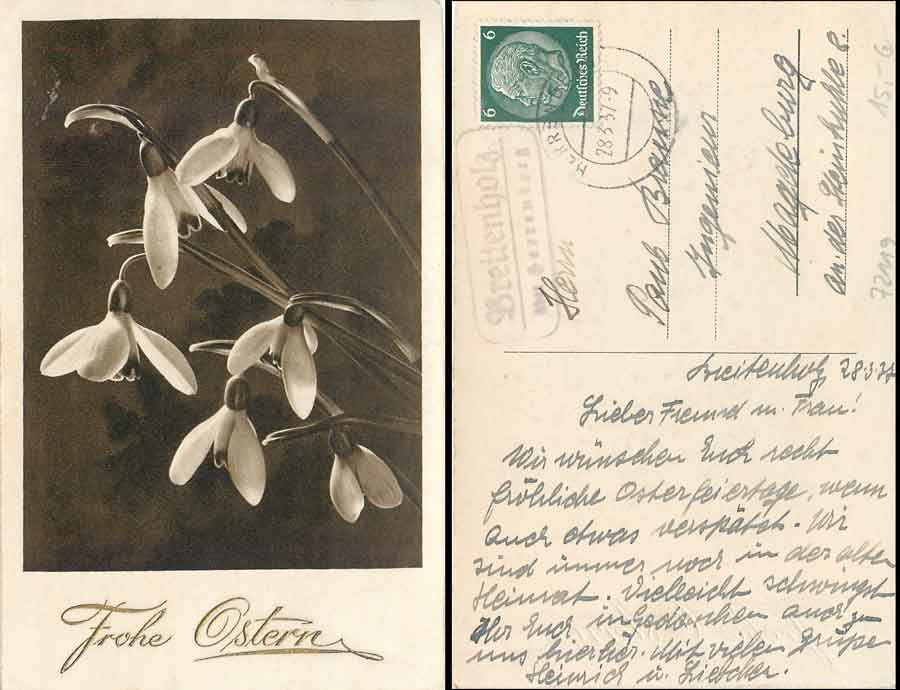 Frohe Ostern
6
Deutsches Reich
6
28.3.37.-9
Breitenholz
Herrn
Paul Braune
Ingenieur
Magdeburg
an der Steinkuhle 6.
15,- G
Breitenholz 28.3.37
Lieber Freund u. Frau!
Wir wünschen Euch recht
fröhliche Osterfeiertage, wenn
auch etwas verspätet. Wir
sind immer noch in der alten
Heimat. Vielleicht schwingt
Ihr Euch in Gedanken auch zu
uns hierher. Mit vielen Grüße
Heinrich u. Liebcher.